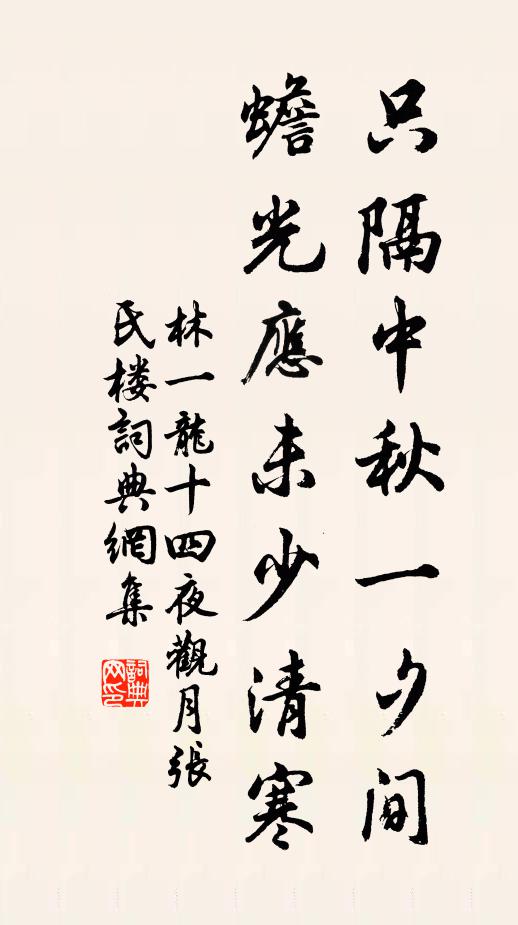 只隔中秋一夕间
蟾光應未少清寒
林一龍十四夜觀月張
氏楼詞典網集
詞典网印